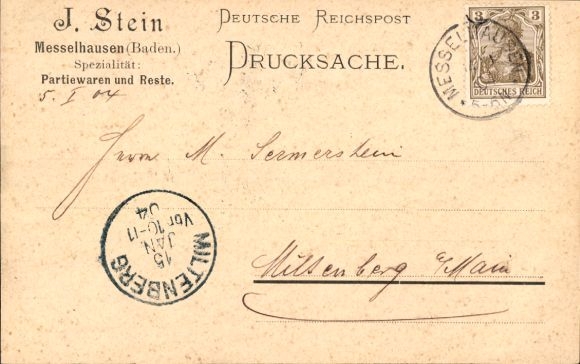 J. Stein
Messelhausen (Baden.)
Spezialität:
Partiewaren und Reste.
5. I 04
DEUTSCHE REICHSPOST
DRUCKSACHE.
3 3
DEUTSCHES REICH
MESSELHAUSEN
5-6N
Herrn M. Sermerstein
MILTENBERG
15
JAN
04
Vor 10-11
Miltenberg a/Main